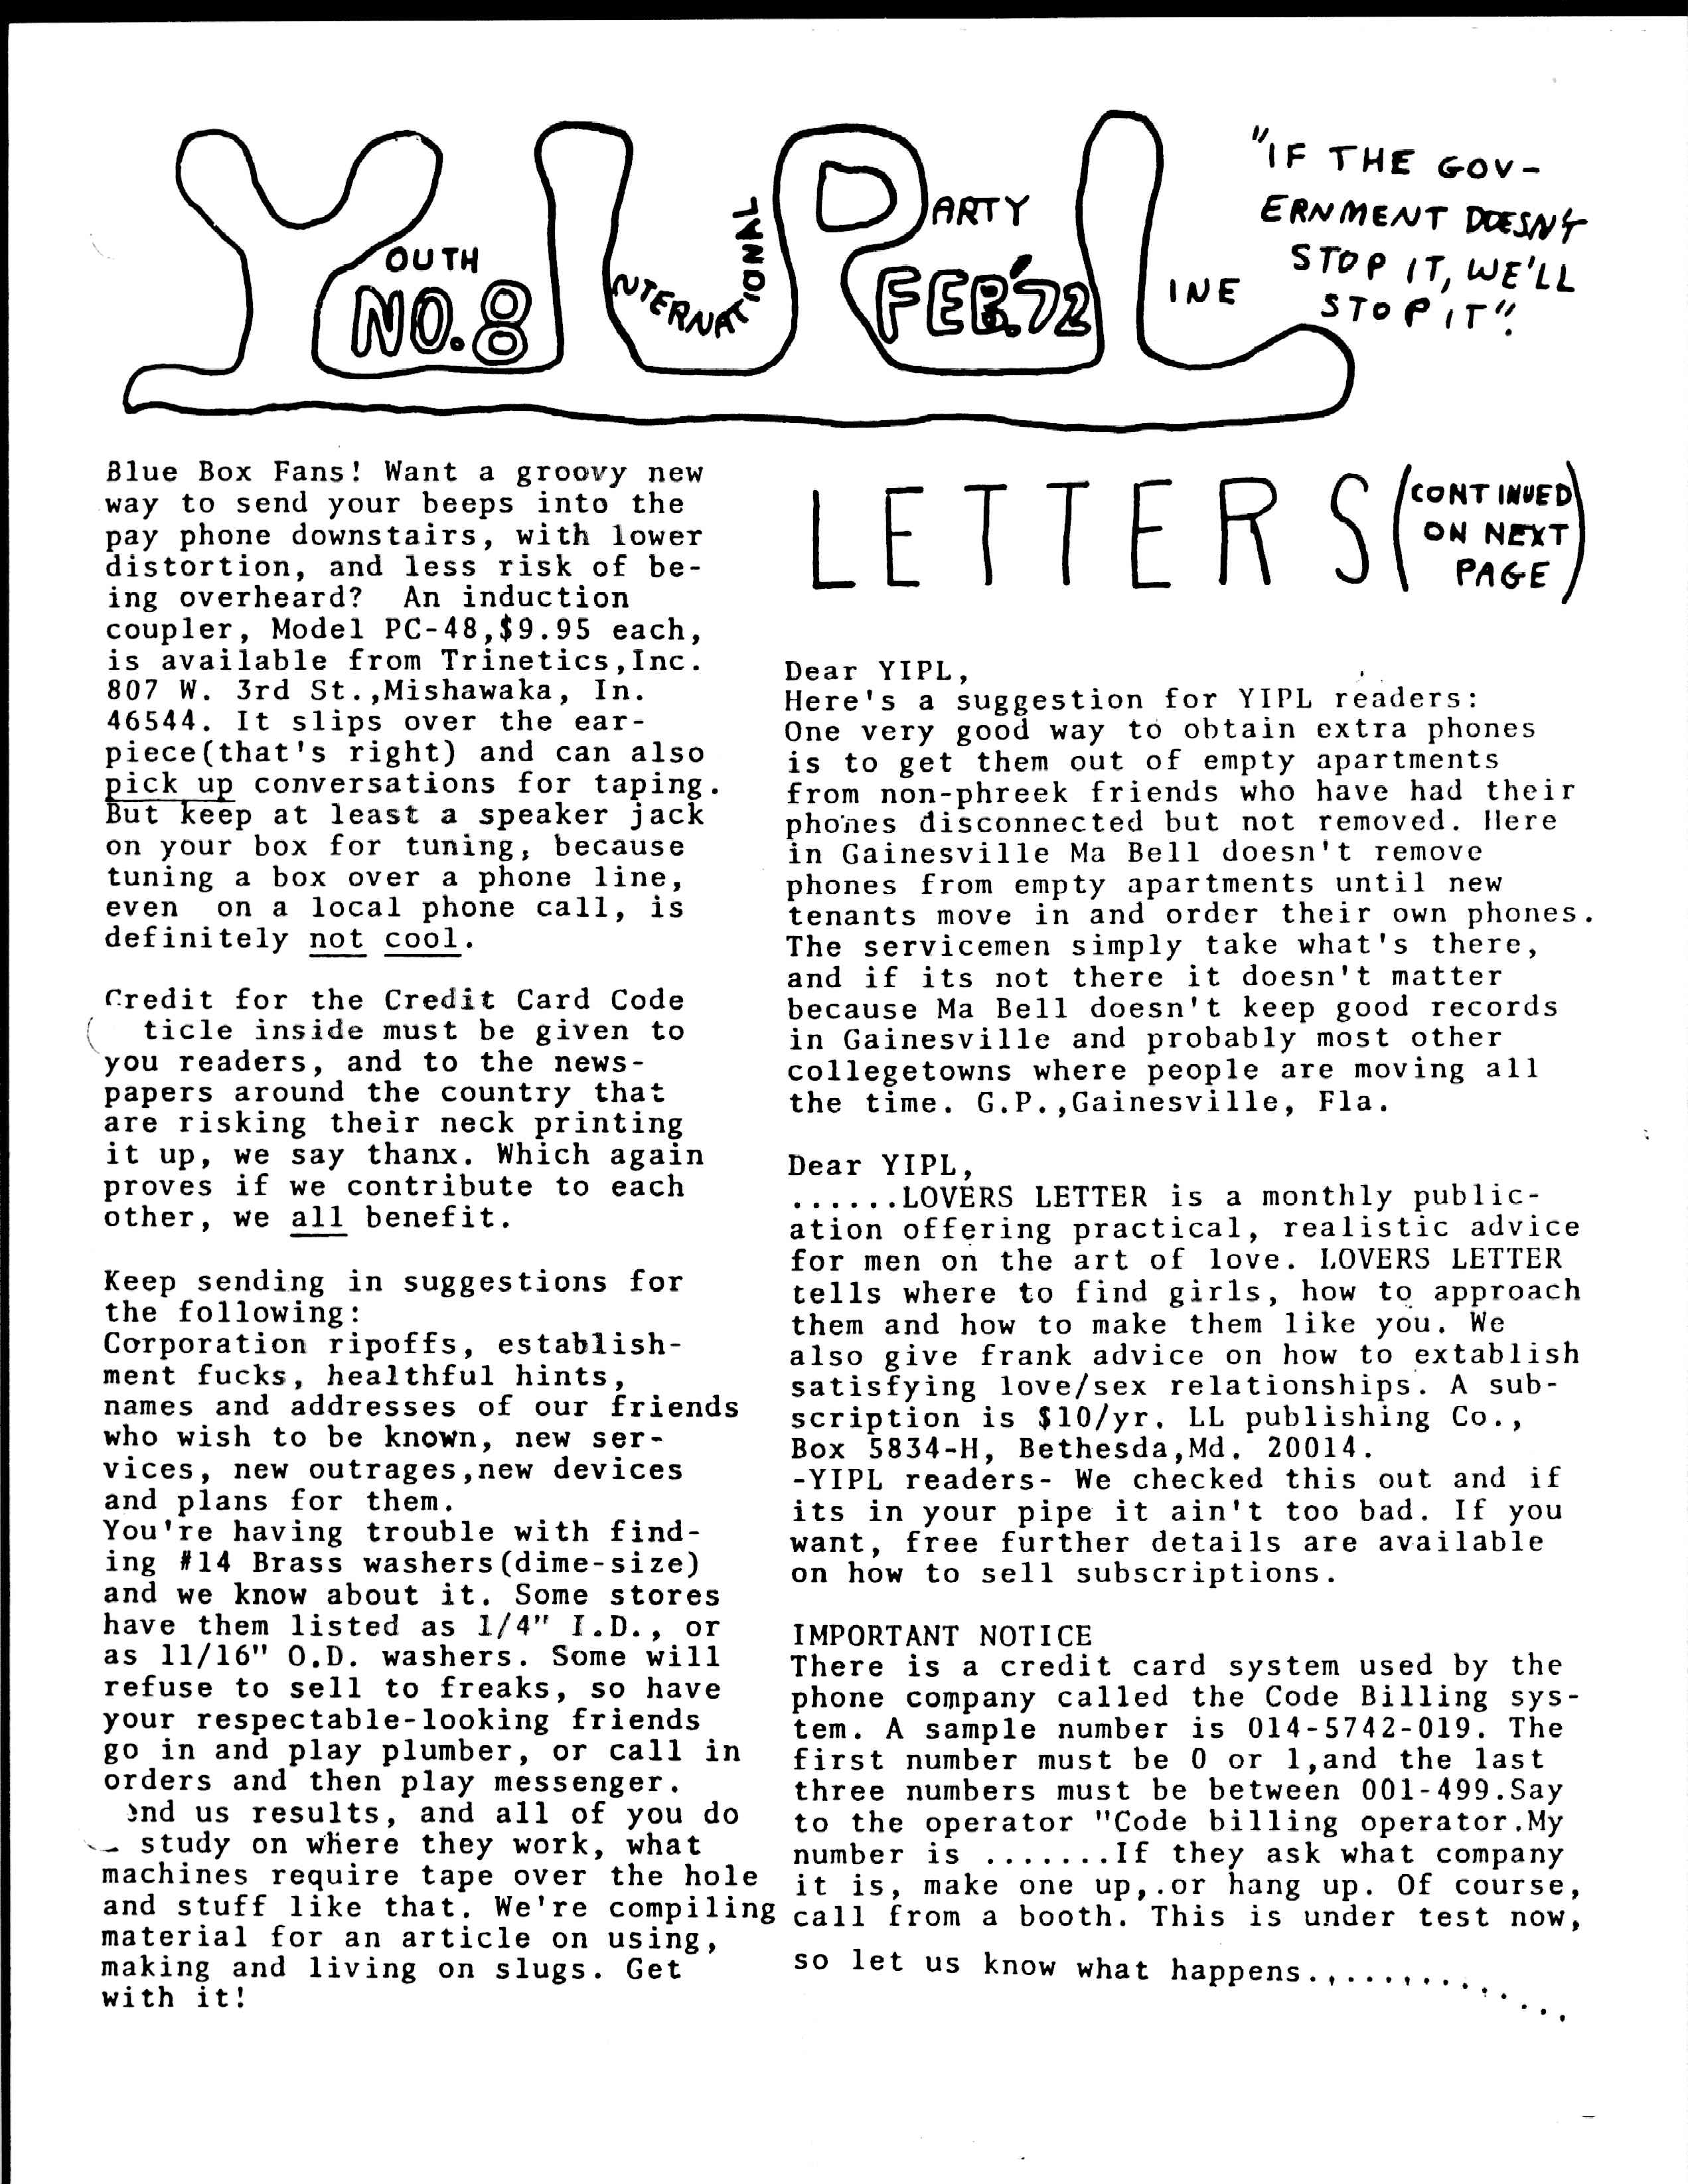 YIPL
OUTH
NTERNATIONAL
ARTY
INE
NO. 8
FEB.'72
"IF THE GOV-
ERNMENT DOESN'T
STOP IT, WE'LL
STOP IT".
Blue Box Fans! Want a groovy new
way to send your beeps into the
pay phone downstairs, with lower
distortion, and less risk of be-
ing overheard?  An induction
coupler, Model PC-48,$9.95 each,
is available from Trinetics,Inc.
807 W. 3rd St.,Mishawaka, In.
46544. It slips over the ear-
piece(that's right) and can also
pick up conversations for taping.
But keep at least a speaker jack
on your box for tuning, because
tuning a box over a phone line,
even  on a local phone call, is
definitely not cool.
Credit for the Credit Card Code
ticle inside must be given to
you readers, and to the news-
papers around the country that
are risking their neck printing
it up, we say thanx. Which again
proves if we contribute to each
other, we all benefit.
Keep sending in suggestions for
the following:
Corporation ripoffs, establish-
ment fucks, healthful hints,
names and addresses of our friends
who wish to be known, new ser-
vices, new outrages,new devices
and plans for them.
You're having trouble with find-
ing #14 Brass washers(dime-size)
and we know about it. Some stores
have them listed as 1/4" I.D., or
as 11/16" O.D. washers. Some will
refuse to sell to freaks, so have
your respectable-looking friends
go in and play plumber, or call in
orders and then play messenger.
end us results, and all of you do
study on where they work, what
machines require tape over the hole
and stuff like that. We're compiling
material for an article on using,
making and living on slugs. Get
with it!
LETTERS (CONTINUED
ON NEXT
PAGE)
Dear YIPL,
Here's a suggestion for YIPL readers:
One very good way to obtain extra phones
is to get them out of empty apartments
from non-phreek friends who have had their
phones disconnected but not removed. Here
in Gainesville Ma Bell doesn't remove
phones from empty apartments until new
tenants move in and order their own phones.
The servicemen simply take what's there,
and if its not there it doesn't matter
because Ma Bell doesn't keep good records
in Gainesville and probably most other
collegetowns where people are moving all
the time. G.P.,Gainesville, Fla.
Dear YIPL,
......LOVERS LETTER is a monthly public-
ation offering practical, realistic advice
for men on the art of love. LOVERS LETTER
tells where to find girls, how to approach
them and how to make them like you. We
also give frank advice on how to extablish
satisfying love/sex relationships. A sub-
scription is $10/yr. LL publishing Co.,
Box 5834-H, Bethesda,Md. 20014.
-YIPL readers- We checked this out and if
its in your pipe it ain't too bad. If you
want, free further details are available
on how to sell subscriptions.
IMPORTANT NOTICE
There is a credit card system used by the
phone company called the Code Billing sys-
tem. A sample number is 014-5742-019. The
first number must be 0 or 1,and the last
three numbers must be between 001-499.Say
to the operator "Code billing operator.My
number is .......If they ask what company
it is, make one up,.or hang up. Of course,
call from a booth. This is under test now,
so let us know what happens..............